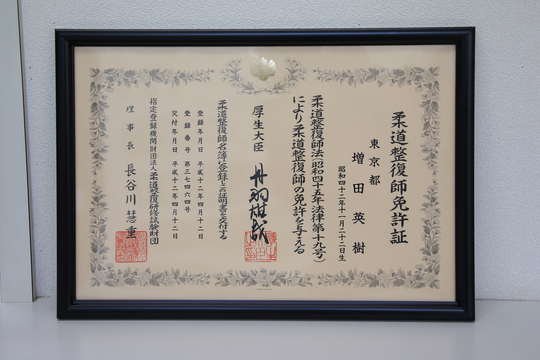 柔道整復師免許証
東京都
増田英樹
昭和四十二年十一月二十二日生
柔道整復師法(昭和四十五年法律第十九号)
により柔道整復師の免許を与える
厚生大臣 丹羽雄哉
柔道整復師名簿に登録しこの証明書を交付する
登録年月日 平成十二年四月十二日
登録番号 第三七四六四号
交付年月日 平成十二年四月十二日
指定登録機関財団法人柔道整復研修試験財団
理事長 長谷川慧重